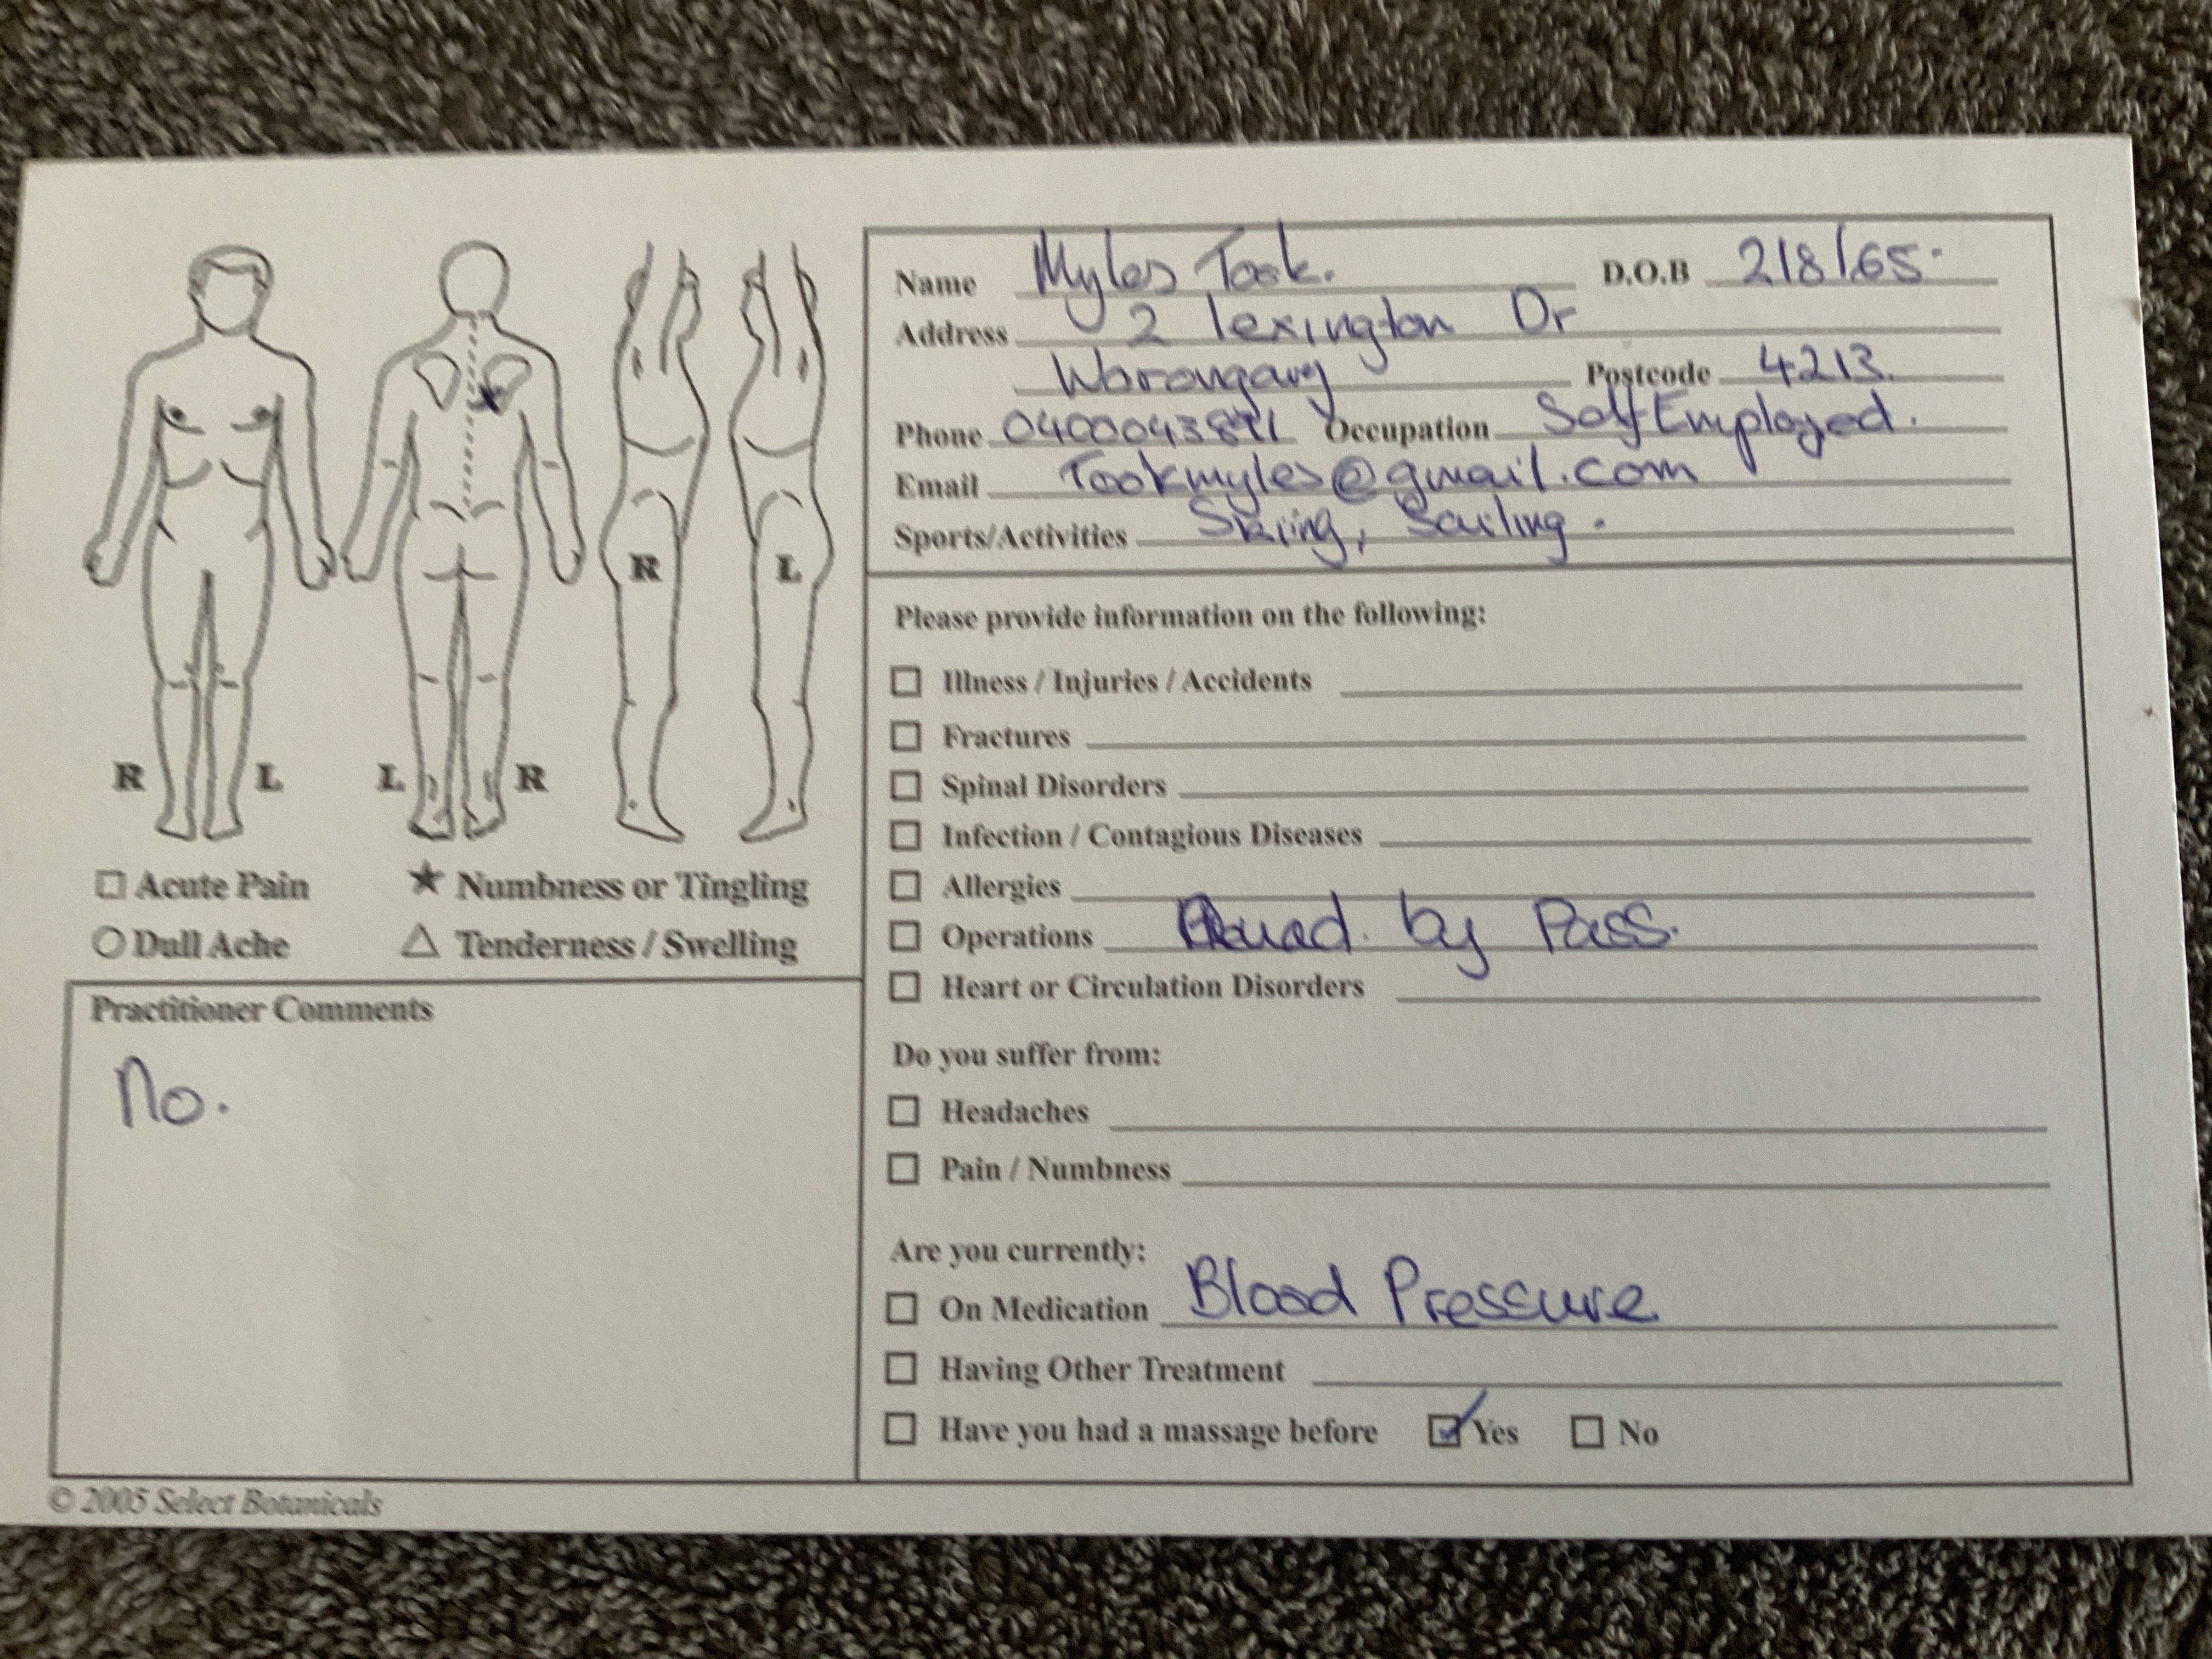 R L L R R L
□ Acute Pain ★ Numbness or Tingling
○ Dull Ache △ Tenderness / Swelling
Practitioner Comments
No.
© 2005 Select Botanicals
Name Myles Took. D.O.B 2/8/65.
Address 2 Lexington Dr
Worongary Postcode 4213.
Phone Occupation Self Employed.
Email Tookmyles@gmail.com
Sports/Activities Skiing, Sailing.
Please provide information on the following:
□ Illness / Injuries / Accidents
□ Fractures
□ Spinal Disorders
□ Infection / Contagious Diseases
□ Allergies
□ Operations Quad. by Pass.
□ Heart or Circulation Disorders
Do you suffer from:
□ Headaches
□ Pain / Numbness
Are you currently:
□ On Medication Blood Pressure
□ Having Other Treatment
□ Have you had a massage before ☑ Yes □ No